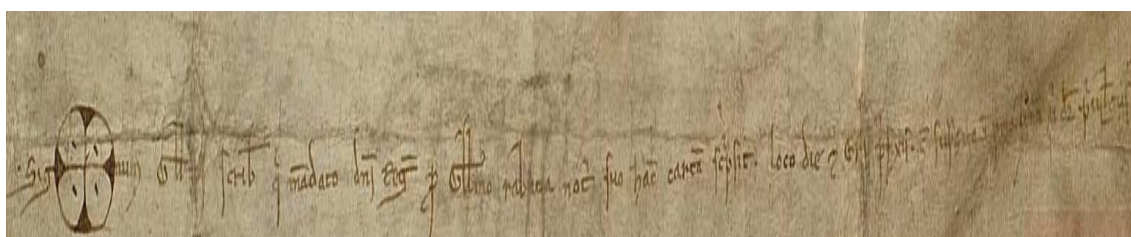 Sig num Gll̅i scrib̅ qͥ mādato dn̅j Reg̅ ꝑ Gll̅mo rabacia not̅ suo hāc cartā scͥpsit. loco die ⁊ Era p̄fix̄.